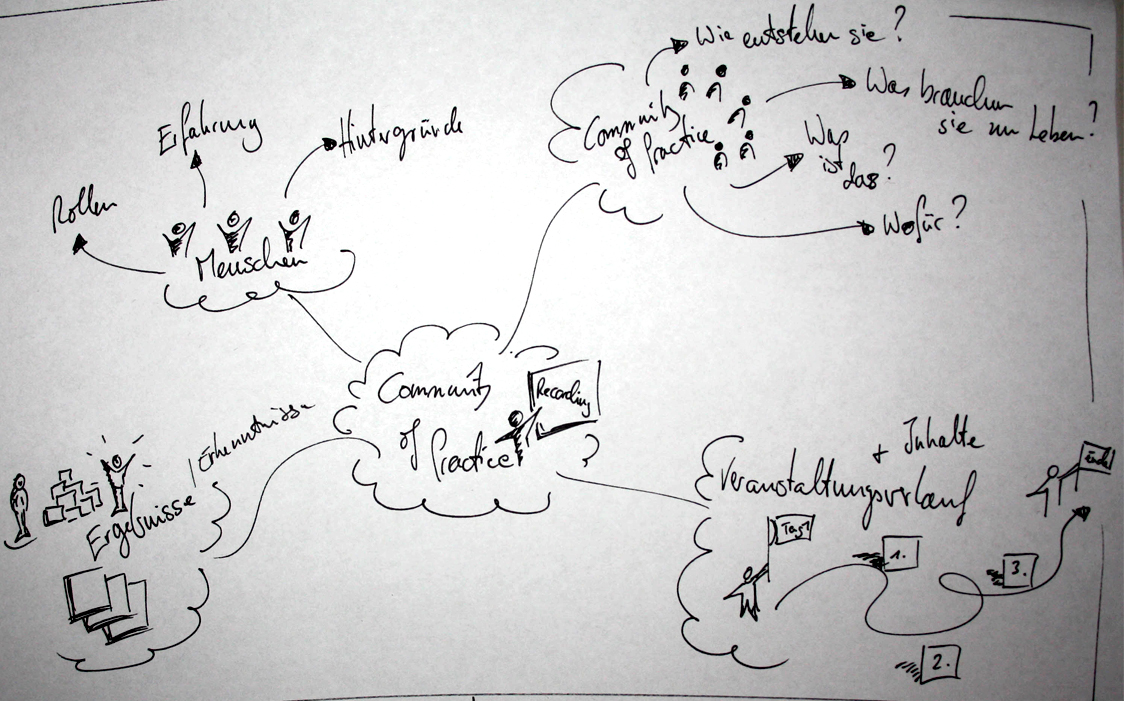 Wie entstehen sie?
Was brauchen
sie zum Leben?
Community
of Practice
Was
ist
das?
Wofür?
Erfahrung
Hintergründe
Rollen
Menschen
Community
of Practice
Recording
/Erkenntnisse
Ergebnisse
+ Inhalte
Veranstaltungsverlauf
Tag 1
1.
2.
3.
Ende